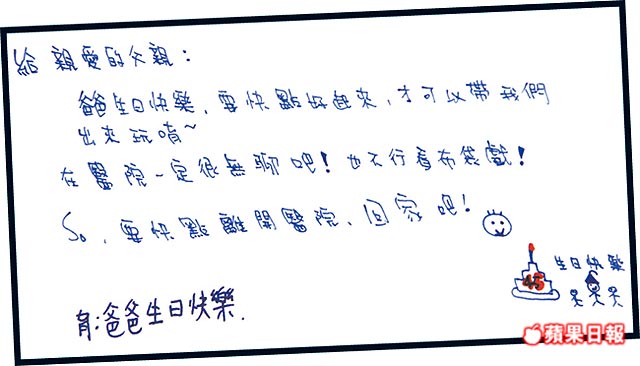 給親愛的父親：
爸爸生日快樂，要快點好起來，才可以帶我們
出來玩唷~
在醫院一定很無聊吧！也不行看布袋戲！
So，要快點離開醫院、回家吧！
生日快樂
45
爸爸生日快樂.
蘋果日報